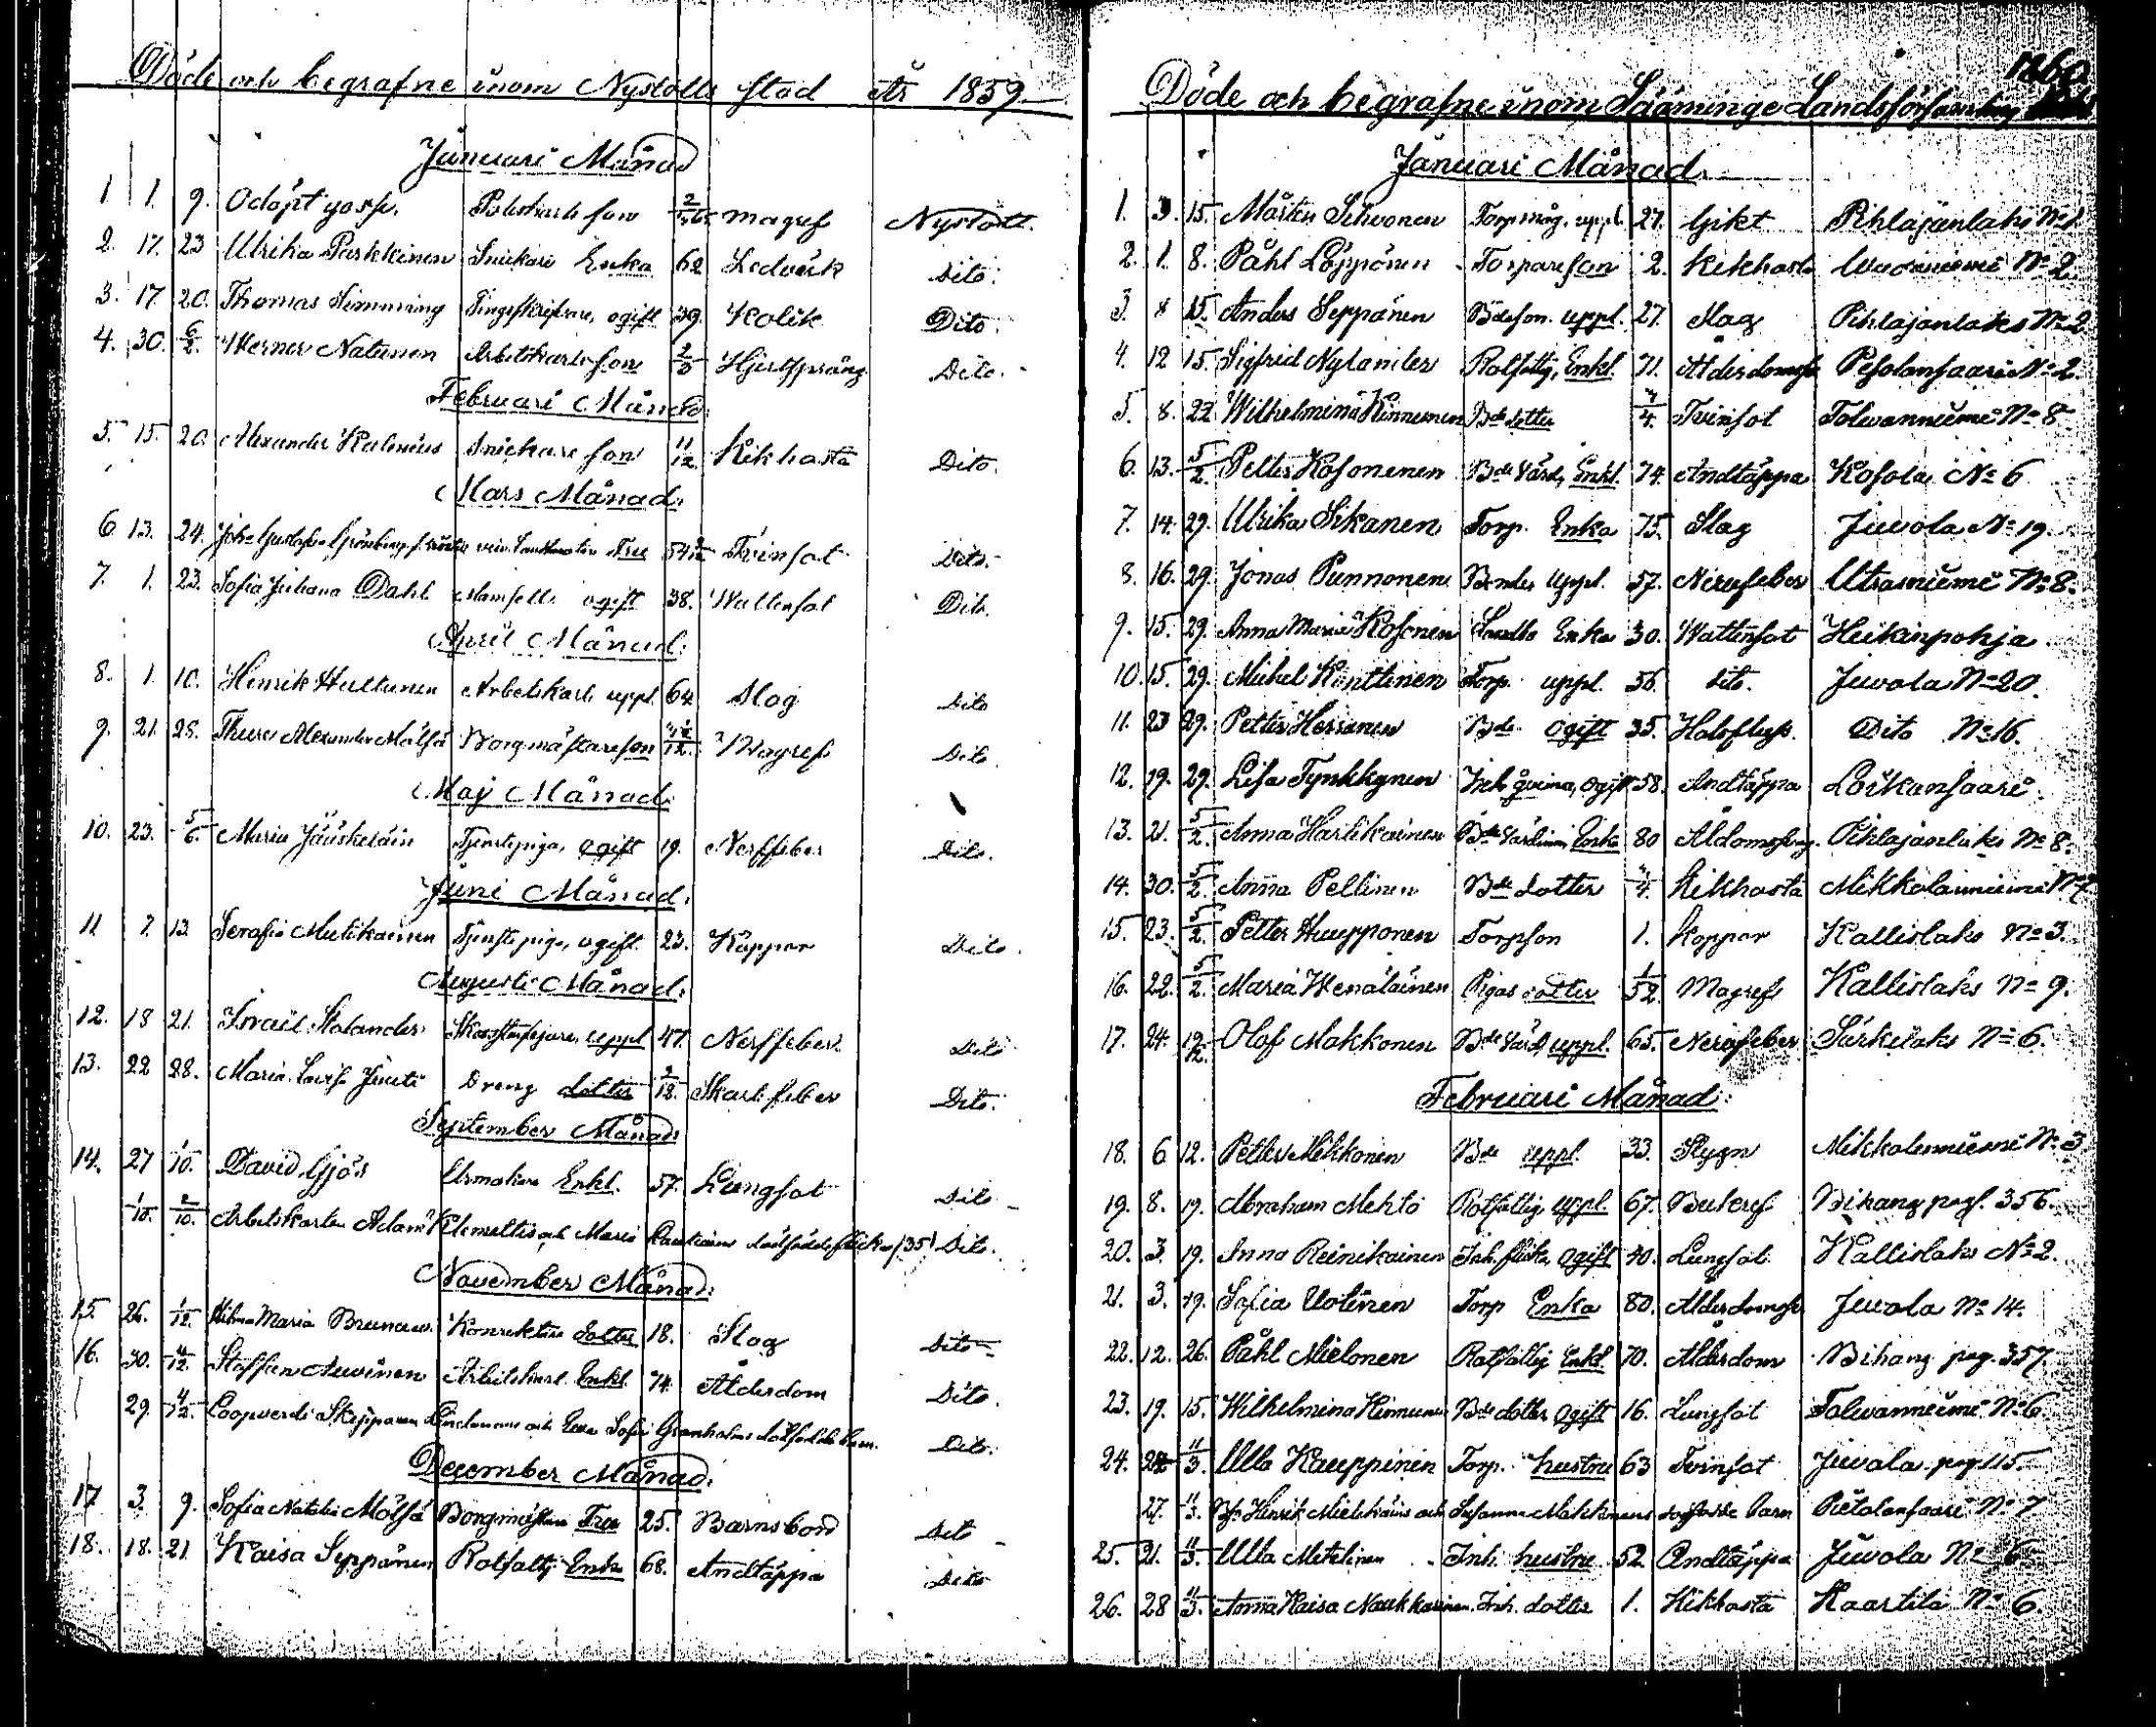 Döde och begrafne inom Nyslotts stad År 1859
Januari Månad
1. 1. 9. Odöpt gosse. son Magref Nyslott.
2. 17. 23 Ulrika Parkkinen Snickare Enka 62 Ledvärk Dito.
3. 17. 20. Thomas Simming ogift 39. Kolik Dito.
4. 30. 6/2. Werner Natunen Arbetskarls son Hjertsprång Dito.
Februari Månad
5. 15. 20. Alexander Snickare son 11/12 Kikhosta Dito.
Mars Månad.
6 13. 24. Grönberg Fru 54 Tvinsot Dito.
7. 1. 23. Sofia Juliana Dahl Mamsell ogift 38. Wattensot Dito
April Månad.
8. 1. 10. Henrik Hultunen Arbetskarl uppl. 64. Slag Dito
9. 21. 28. Thure Alexander Mölsä Borgmästareson Magref Dito.
Maj Månad.
10. 23. 5/6. Maria Jääskeläin Tjenstepiga, ogift 19. Nerffeber Dito.
Juni Månad.
11 7. 13. Serafia Mutikainen Tjenstepiga, ogift. 23. Koppor Dito.
Augusti Månad.
12. 18 21. Israel Stolander uppl 47. Nerffeber Dito
13. 22 28. Maria Lovisa Dreng dotter 2/12. Skarl.feber Dito.
September Månad
14. 27 1/10. David Gjös Urmakare Enkl. 57. Lungsot Dito
1/10. 2/10. Arbetskarlen Adam Klemettis och Maria dödfödde flicka (35) Dito.
November Månad.
15 26. 1/12. Maria Konrektors dotter 18. Slag Dito
16. 30. 4/12. Staffan Auvinen Arbetskarl Enkl. 74 Ålderdom Dito.
29. 4/12. Coopverdi Skepparen och Eva Sofia Granholms dödfödde barn. Dito.
December Månad.
17 3. 9. Sofia Natalia Mölsä Borgmästare Fru 25. Barnsbörd Dito
18. 18. 21. Kaisa Seppänen Rotfattig Enka 68. Andtäppa Dito
Döde och begrafne inom Sääminge Landsförsamling 1860
Januari Månad.
1. 3. 15. Mårten Sihvonen Torpmåg, uppl. 27. Gikt Pihlajanlaks No 1.
2. 1. 8. Påhl Löppönen Torpareson 2. Kikhosta No 2.
3. 8 15. Anders Seppänen Bdeson. uppl. 27. Slag Pihlajanlaks No 2
4. 12 15. Sigfrid Nylander Rotfattig, Enkl. 71. Pesolansaari No 2.
5. 8. 22. Wilhelmina Kinnunen Bde dotter 4. Tvinsot Tolvanniemi No 8
6. 13. 5/2. Petter Kosonen Bde Värd, Enkl. 74. Andtäppa Kosola No 6
7. 14. 29. Ulrika Sikanen Torp. Enka 75. Slag Juvola No 19.
8. 16. 29. Jonas Punnonen Bonde uppl. 57. Nervfeber Utrasniemi No 8.
9. 15. 29. Anna Maria Kosonen Enka 30. Wattensot Heikinpohja
10. 15. 29. Mickel Konttinen Torp. uppl. 56. Dito. Juvola No 20.
11. 23 29. Petter Heiskanen Bde ogift 35. Halsfluss. Dito No 16.
12. 19. 29. Lisa Tynkkynen Inh. qvinna, ogift 58. Andtäppa Loikansaari
13. 21. 5/2. Anna Hartikainen Bde Värdinna Enka 80 Pihlajanlaks No 8.
14. 30. 5/2. Anna Pellinen Bde dotter 4. Kikhosta Mikkolanniemi No 7
15. 23. 5/2. Petter Huupponen Torpson 1. Koppor Kallislaks No 3.
16. 22. 5/2. Maria Wenäläinen Pigas dotter 1/52. Magref Kallislaks No 9.
17. 24. 12/2. Olof Makkonen Bde Värd uppl. 65. Nervfeber Särkilaks No 6.
Februari Månad.
18. 6 12. Petter Mikkonen Bde uppl 33. Stygn Mikkolanniemi No 3
19. 8. 19. Abraham Mehtö Rotfattig uppl. 67. Bukref Bihang pag. 356.
20. 3. 19. Anna Reinikainen Inh. flicka, ogift 40. Lungsot Kallislaks No 2.
21. 3. 19. Sofia Uotinen Torp Enka 80. Juvola No 14.
22. 12. 26. Påhl Mielonen Rotfattig Enkl. 70. Ålderdom Bihang pag. 357.
23. 19. 15. Wilhelmina Kinnunen Bde dotter ogift 16. Lungsot Tolvanniemi No 6.
24. 11/3. Ulla Kauppinen Torp. hustru 63 Tvinsot Juvola pag. 115.
27. 11/3. Henrik och Susanna dödfödde barn Pietolansaari No 7
25. 21. 11/3. Ulla Inh. hustru 52. Andtäppa Juvola No 16
26. 28 11/3. Anna Kaisa Naukkarinen Inh. dotter 1. Kikhosta Haartila No 6.